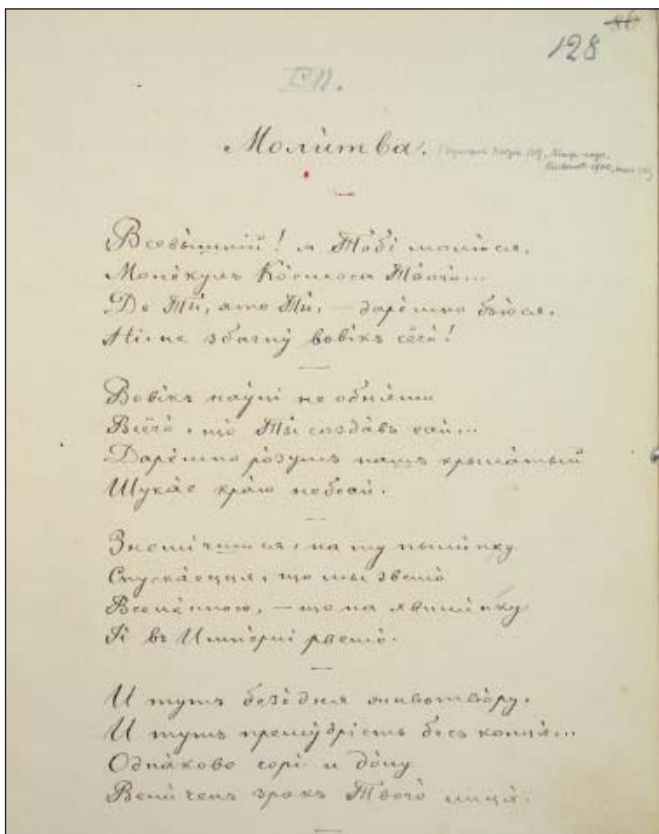 86
128
Моли́тва.
Всевы́шний! я Тобі молю́ся,
Моле́кулъ Ко́смоса Твого́...
Де Ты, яко Ты, — даре́мно бью́ся.
Ні, не збагну́ вовікъ сёго́!
Вовікъ нау́ці не обня́ти
Всёго́, що Ты созда́въ єси...
Даре́мно ро́зумъ нашъ крыла́тый
Шука́є кра́ю небеси.
на ту пыли́нку
Спуска́єтця, що мы звемо́
Вселе́нною, — що на
Її въ Имперіі рвемо́.
И тутъ безо́дня животво́ру,
И тутъ прему́дрість безъ кінця́...
Одна́ково горі и до́лу
Вели́ченъ зракъ Твого́ лиця́.